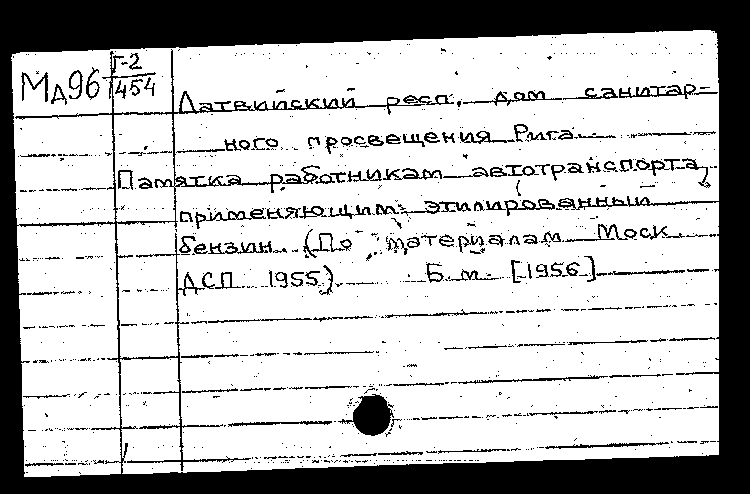 Мд96 Г-2/454
Латвийский респ. дом санитар-
ного просвещения Рига.
Памятка работникам автотранспорта,
применяющим этилированный
бензин. (По материалам Моск.
ДСП 1955). Б.м. [1956]